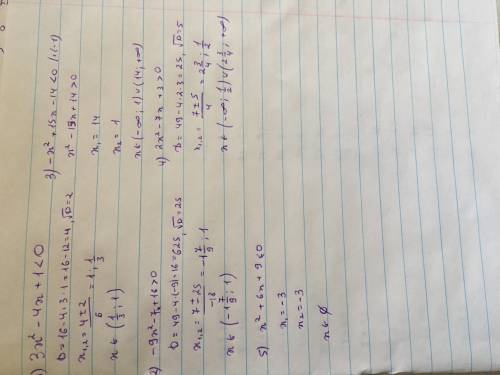 1) 3x² - 4x + 1 < 0
D = 16 - 4·3·1 = 16 - 12 = 4, √D = 2
x₁,₂ = (4 ± 2)/6 = 1, 1/3
x ∈ (1/3; 1)
2) -9x² - 7x + 16 > 0
D = 49 - 4·(-9)·16 = 625, √D = 25
x₁,₂ = (7 ± 25)/-18 = -1 7/9; 1
x ∈ (-1 7/9; 1)
5) x² + 6x + 9 < 0
x₁ = -3
x₂ = -3
x ∈ ∅
3) -x² + 15x - 14 < 0 |·(-1)
x² - 15x + 14 > 0
x₁ = 14
x₂ = 1
x ∈ (-∞; 1) ∪ (14; +∞)
4) 2x² - 7x + 3 > 0
D = 49 - 4·2·3 = 25, √D = 5
x₁,₂ = (7 ± 5)/4 = 2 3/4; 1/2
x ∈ (-∞; 1/2) ∪ (2 3/4; +∞)